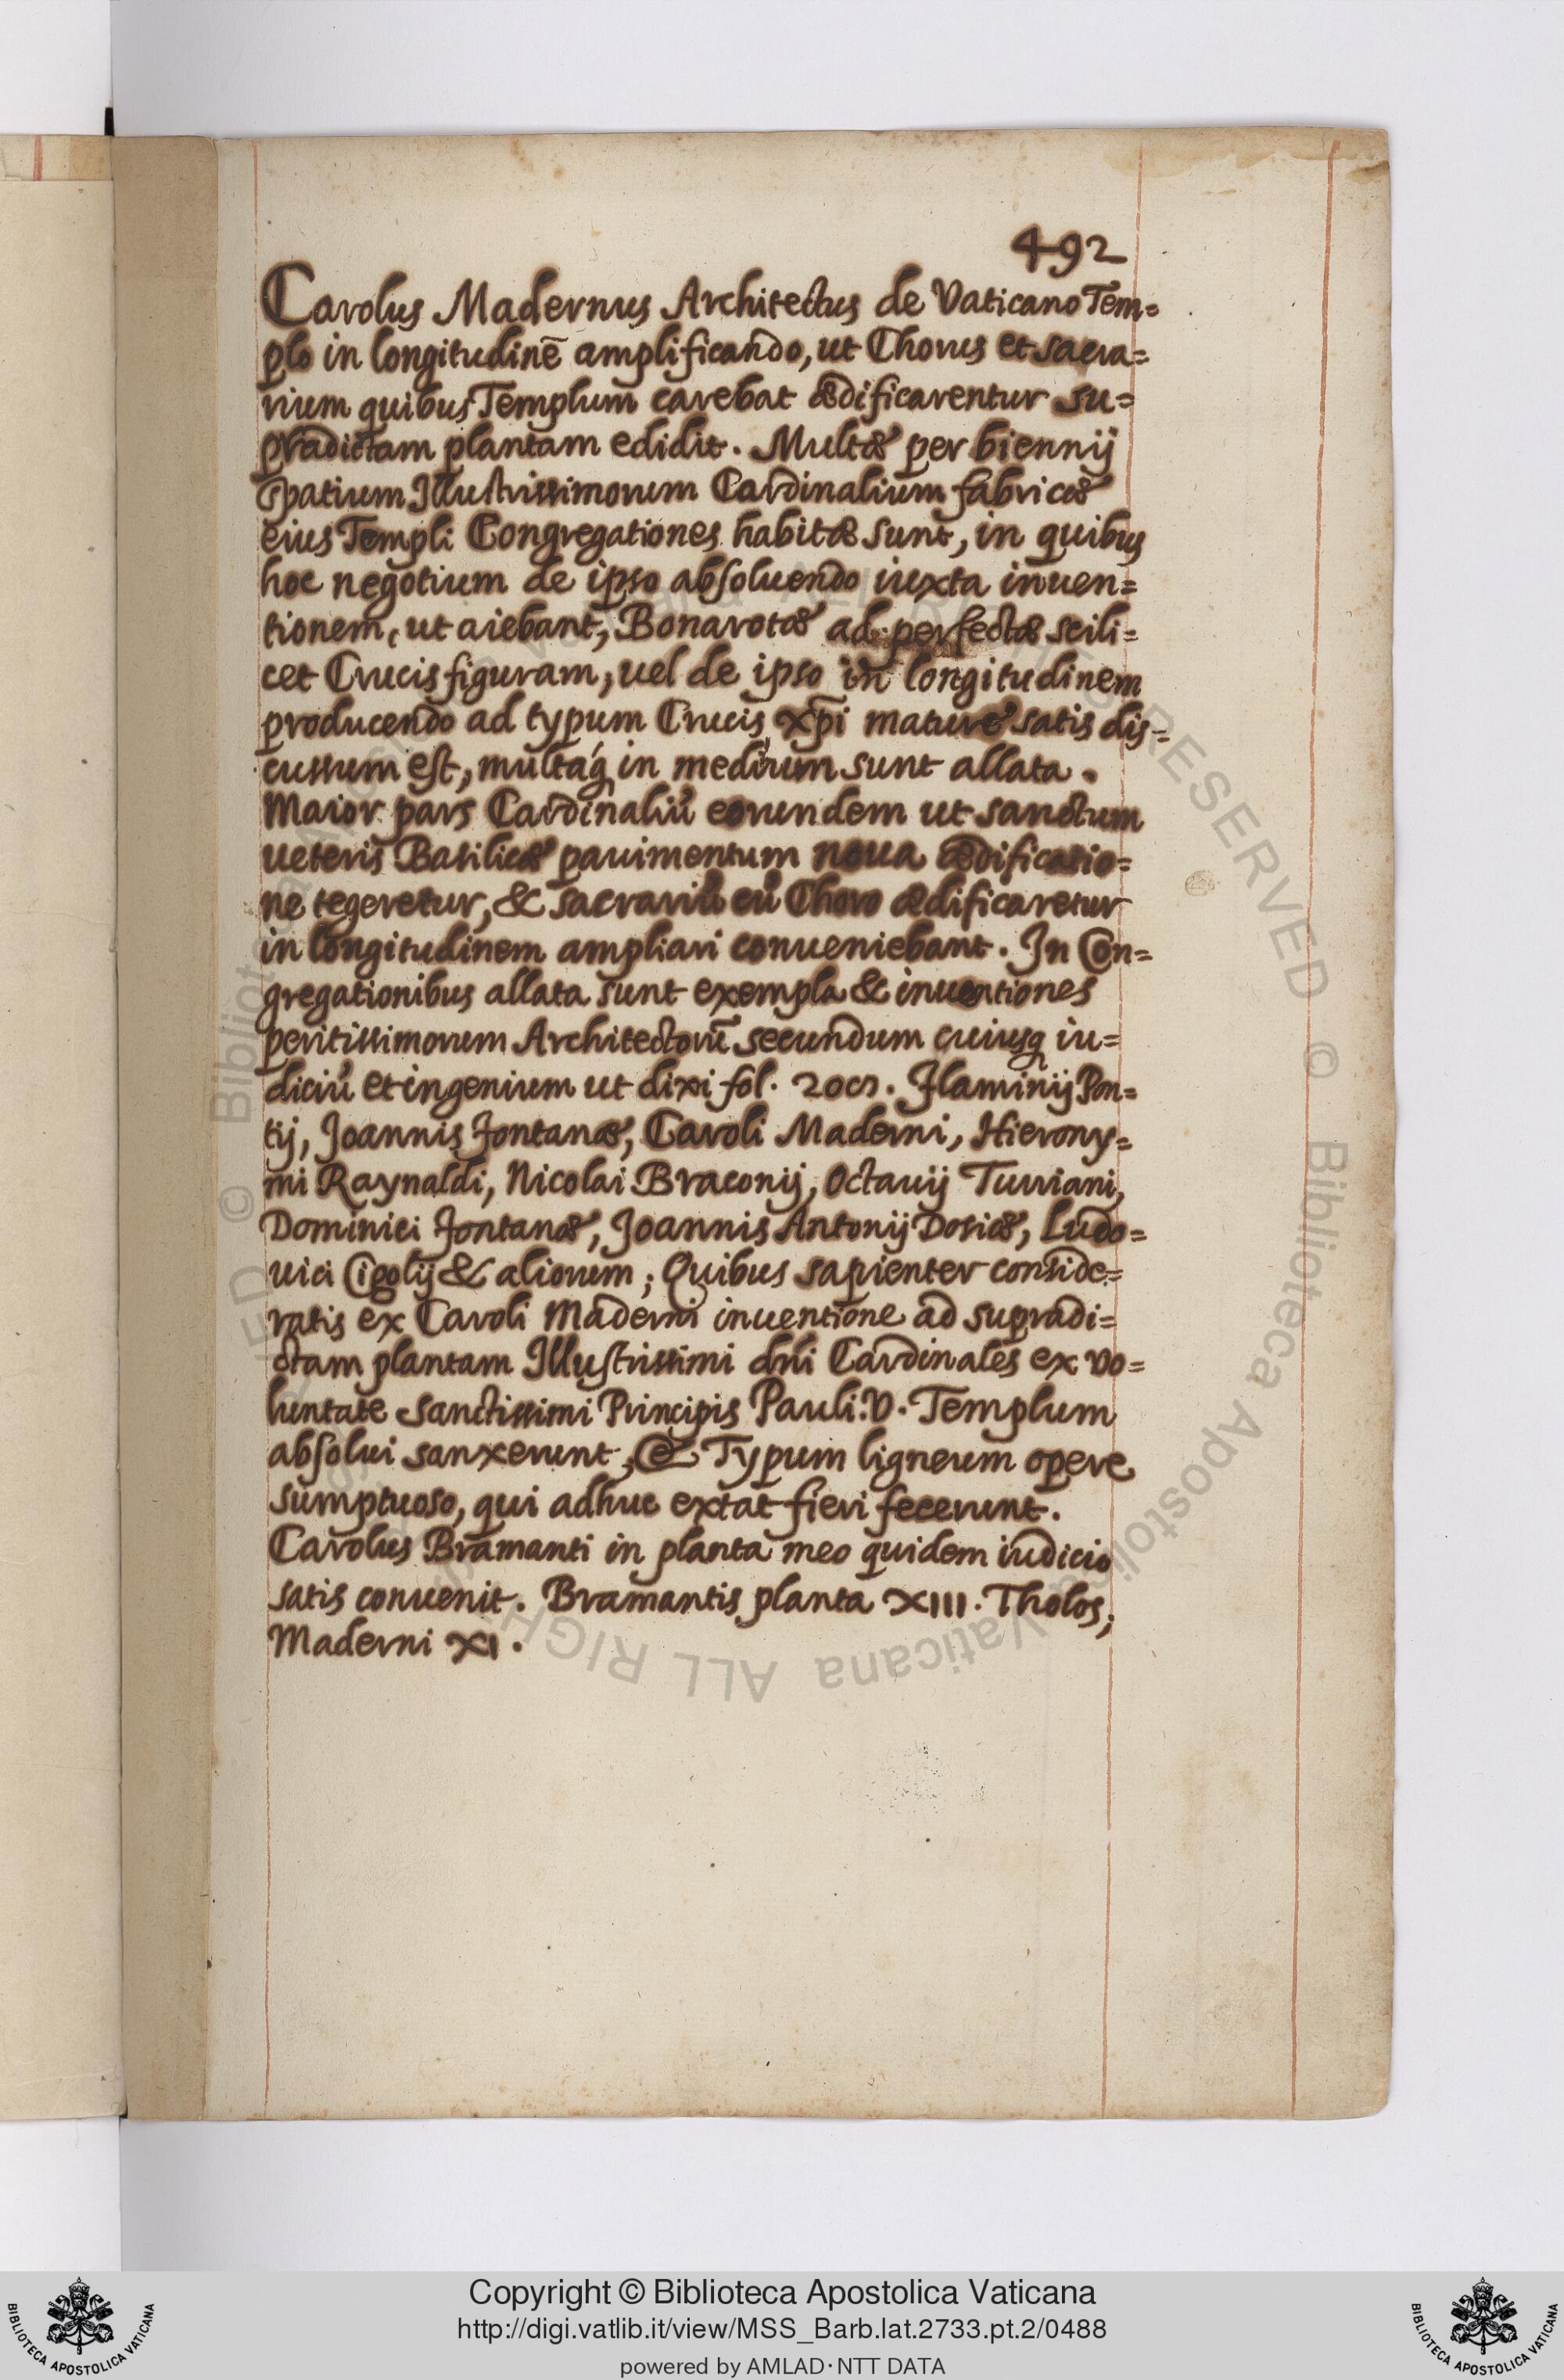 492
Carolus Madernus Architectus de Vaticano Tem=
plo in longitudinē amplificando, ut Chorus et sacra=
rium quibus Templum carebat ædificarentur su=
pradictam plantam edidit. Multæ per biennij
spatium Illustrissimorum Cardinalium fabricæ
eius Templi Congregationes habitæ sunt, in quibus
hoc negotium de ipso absoluendo iuxta inuen=
tionem, ut aiebant, Bonarotæ ad perfectæ scili=
cet Crucis figuram, uel de ipso in longitudinem
producendo ad typum Crucis xp̄i mature satis dis=
cussum est, multaq́ in medium sunt allata.
Maior pars Cardinaliū eorundem ut sanctum
ueteris Basilicæ pauimentum noua ædificatio=
ne tegeretur, & sacrariū cū Choro ædificaretur
in longitudinem ampliari conueniebant. In Con=
gregationibus allata sunt exempla & inuentiones
peritissimorum Architectorū secundum cuiusq iu=
diciū et ingenium ut dixi fol. Flaminij Pon=
tij, Joannis Fontanæ, Caroli Maderni, Hierony=
mi Raynaldi, Nicolai Braconij, Octauij Turriani,
Dominici Fontanæ, Joannis Antonij Dosiæ, Ludo=
uici Cigolij & aliorum; Quibus sapienter conside=
ratis ex Caroli Maderni inuentione ad supradi=
ctam plantam Illustrissimi dn̄i Cardinales ex vo=
luntate sanctissimi Principis Pauli.V. Templum
absolui sanxerunt, & Typum ligneum opere
sumptuoso, qui adhuc extat fieri fecerunt.
Carolus Bramanti in planta meo quidem iudicio
satis conuenit. Bramantis planta XIII. Tholos,
Maderni XI.
© Biblioteca Apostolica Vaticana ALL RIGHTS RESERVED
Copyright © Biblioteca Apostolica Vaticana
http://digi.vatlib.it/view/MSS_Barb.lat.2733.pt.2/0488
powered by AMLAD·NTT DATA
BIBLIOTECA APOSTOLICA VATICANA
BIBLIOTECA APOSTOLICA VATICANA